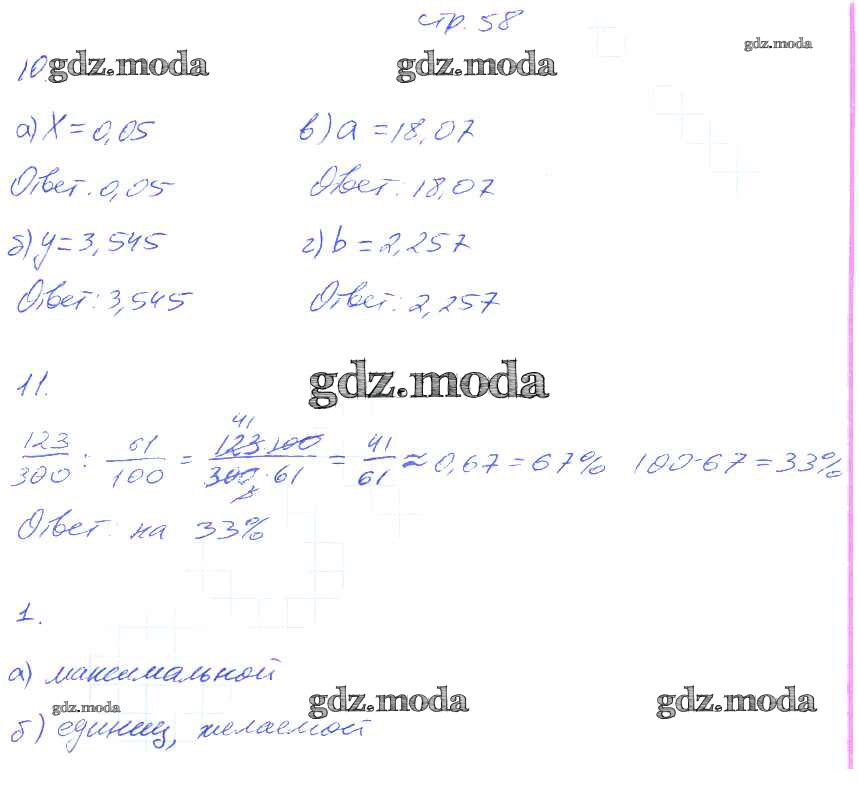 стр. 58
gdz.moda
10. gdz.moda gdz.moda
а) x = 0,05 в) a = 18,07
Ответ. 0,05 Ответ. 18,07
б) y = 3,545 г) b = 2,257
Ответ: 3,545 Ответ: 2,257
11. gdz.moda
41
123/300 : 61/100 = 123·100/300·61 = 41/61 ≈ 0,67 = 67% 100-67 = 33%
Ответ: на 33%
1.
а) максимальной
gdz.moda gdz.moda gdz.moda
б) единиц, желаемой